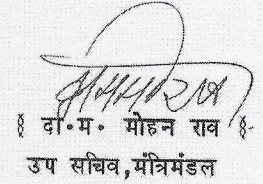 § दो·म· मोहन राव §·
उप सचिव,मंत्रिमंडल